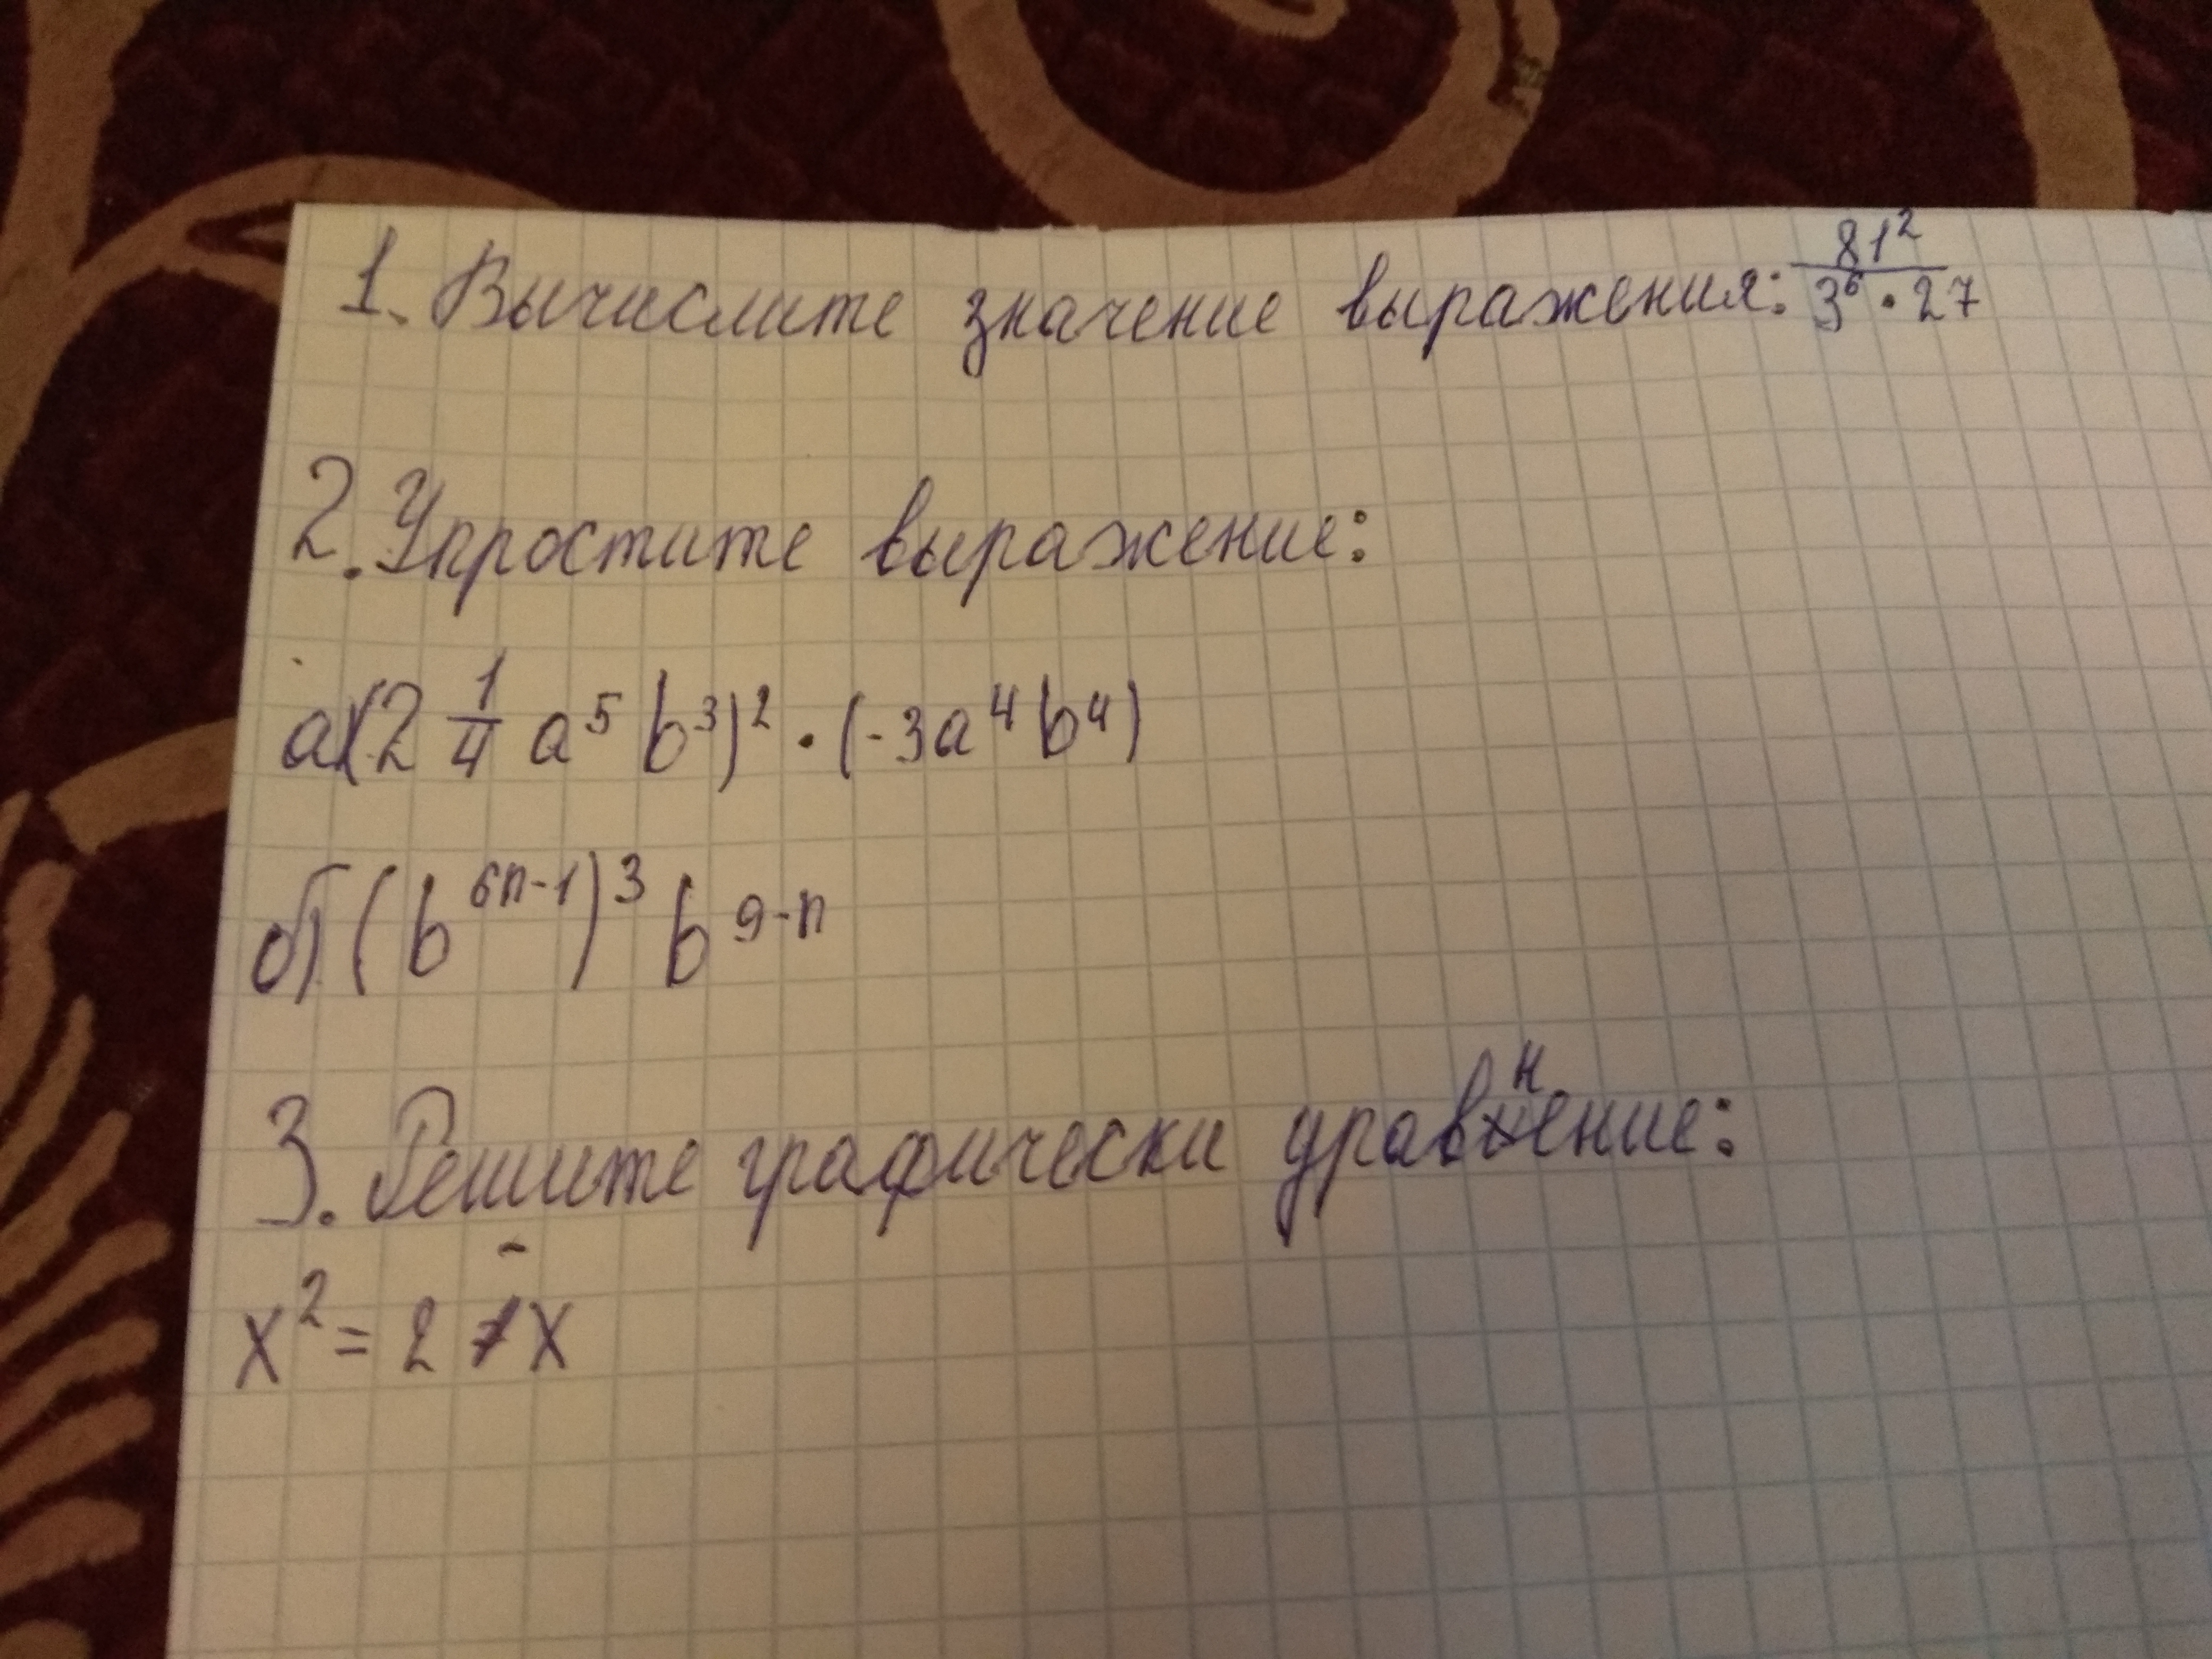 1. Вычислите значение выражения: 81²/(3⁶ · 27)
2. Упростите выражение:
а) (2 1/4 a⁵ b³)² · (-3a⁴b⁴)
б) (b⁶ⁿ⁻¹)³ b⁹⁻ⁿ
3. Решите графически уравнение:
x² = 2 - x